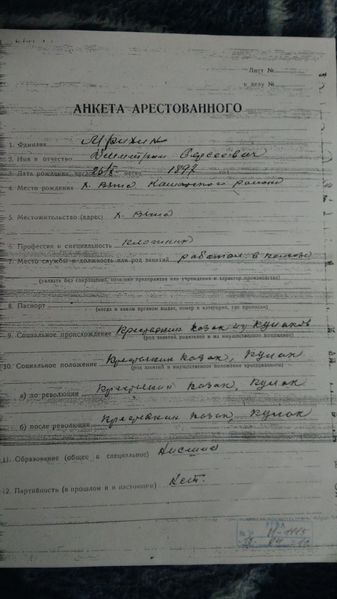 Лист №
к делу №
АНКЕТА АРЕСТОВАННОГО
1. Фамилия
2. Имя и отчество Дмитрий Сергеевич
3. Дата рождения: 1897 год
4. Место рождения
5. Местожительство (адрес)
6. Профессия и специальность плотник
7. Место службы и должность или род занятий работал в колхозе
(указать без сокращений, название предприятия или учреждения и характер производства)
8. Паспорт
(когда и каким органом выдан, номер и категория, где прописан)
9. Социальное происхождение Крестьянин казак из кулаков
(род занятий родителей и их имущественное положение)
10. Социальное положение Крестьянин казак, кулак
(род занятий и имущественное положение арестованного)
а) до революции Крестьянин казак, кулак
б) после революции Крестьянин казак, кулак
11. Образование (общее и специальное) Низшее
12. Партийность (в прошлом и в настоящем)